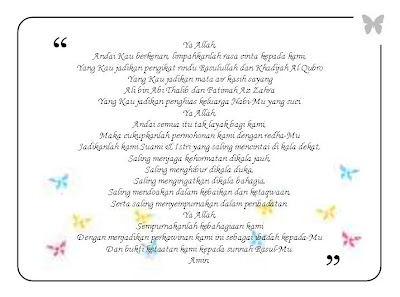 “
Ya Allah,
Andai Kau berkenan, limpahkanlah rasa cinta kepada kami,
Yang Kau jadikan pengikat rindu Rasulullah dan Khadijah Al Qubro
Yang Kau jadikan mata air kasih sayang
Ali bin Abi Thalib dan Fatimah Az Zahra
Yang Kau jadikan penghias keluarga Nabi-Mu yang suci.
Ya Allah,
Andai semua itu tak layak bagi kami,
Maka cukupkanlah permohonan kami dengan redha-Mu
Jadikanlah kami Suami & Istri yang saling mencintai di kala dekat,
Saling menjaga kehormatan dikala jauh,
Saling menghibur dikala duka,
Saling mengingatkan dikala bahagia,
Saling mendoakan dalam kebaikan dan ketaqwaan,
Serta saling menyempurnakan dalam peribadatan.
Ya Allah,
Sempurnakanlah kebahagiaan kami
Dengan menjadikan perkawinan kami ini sebagai ibadah kepada-Mu
Dan bukti ketaatan kami kepada sunnah Rasul-Mu
Amin.
”